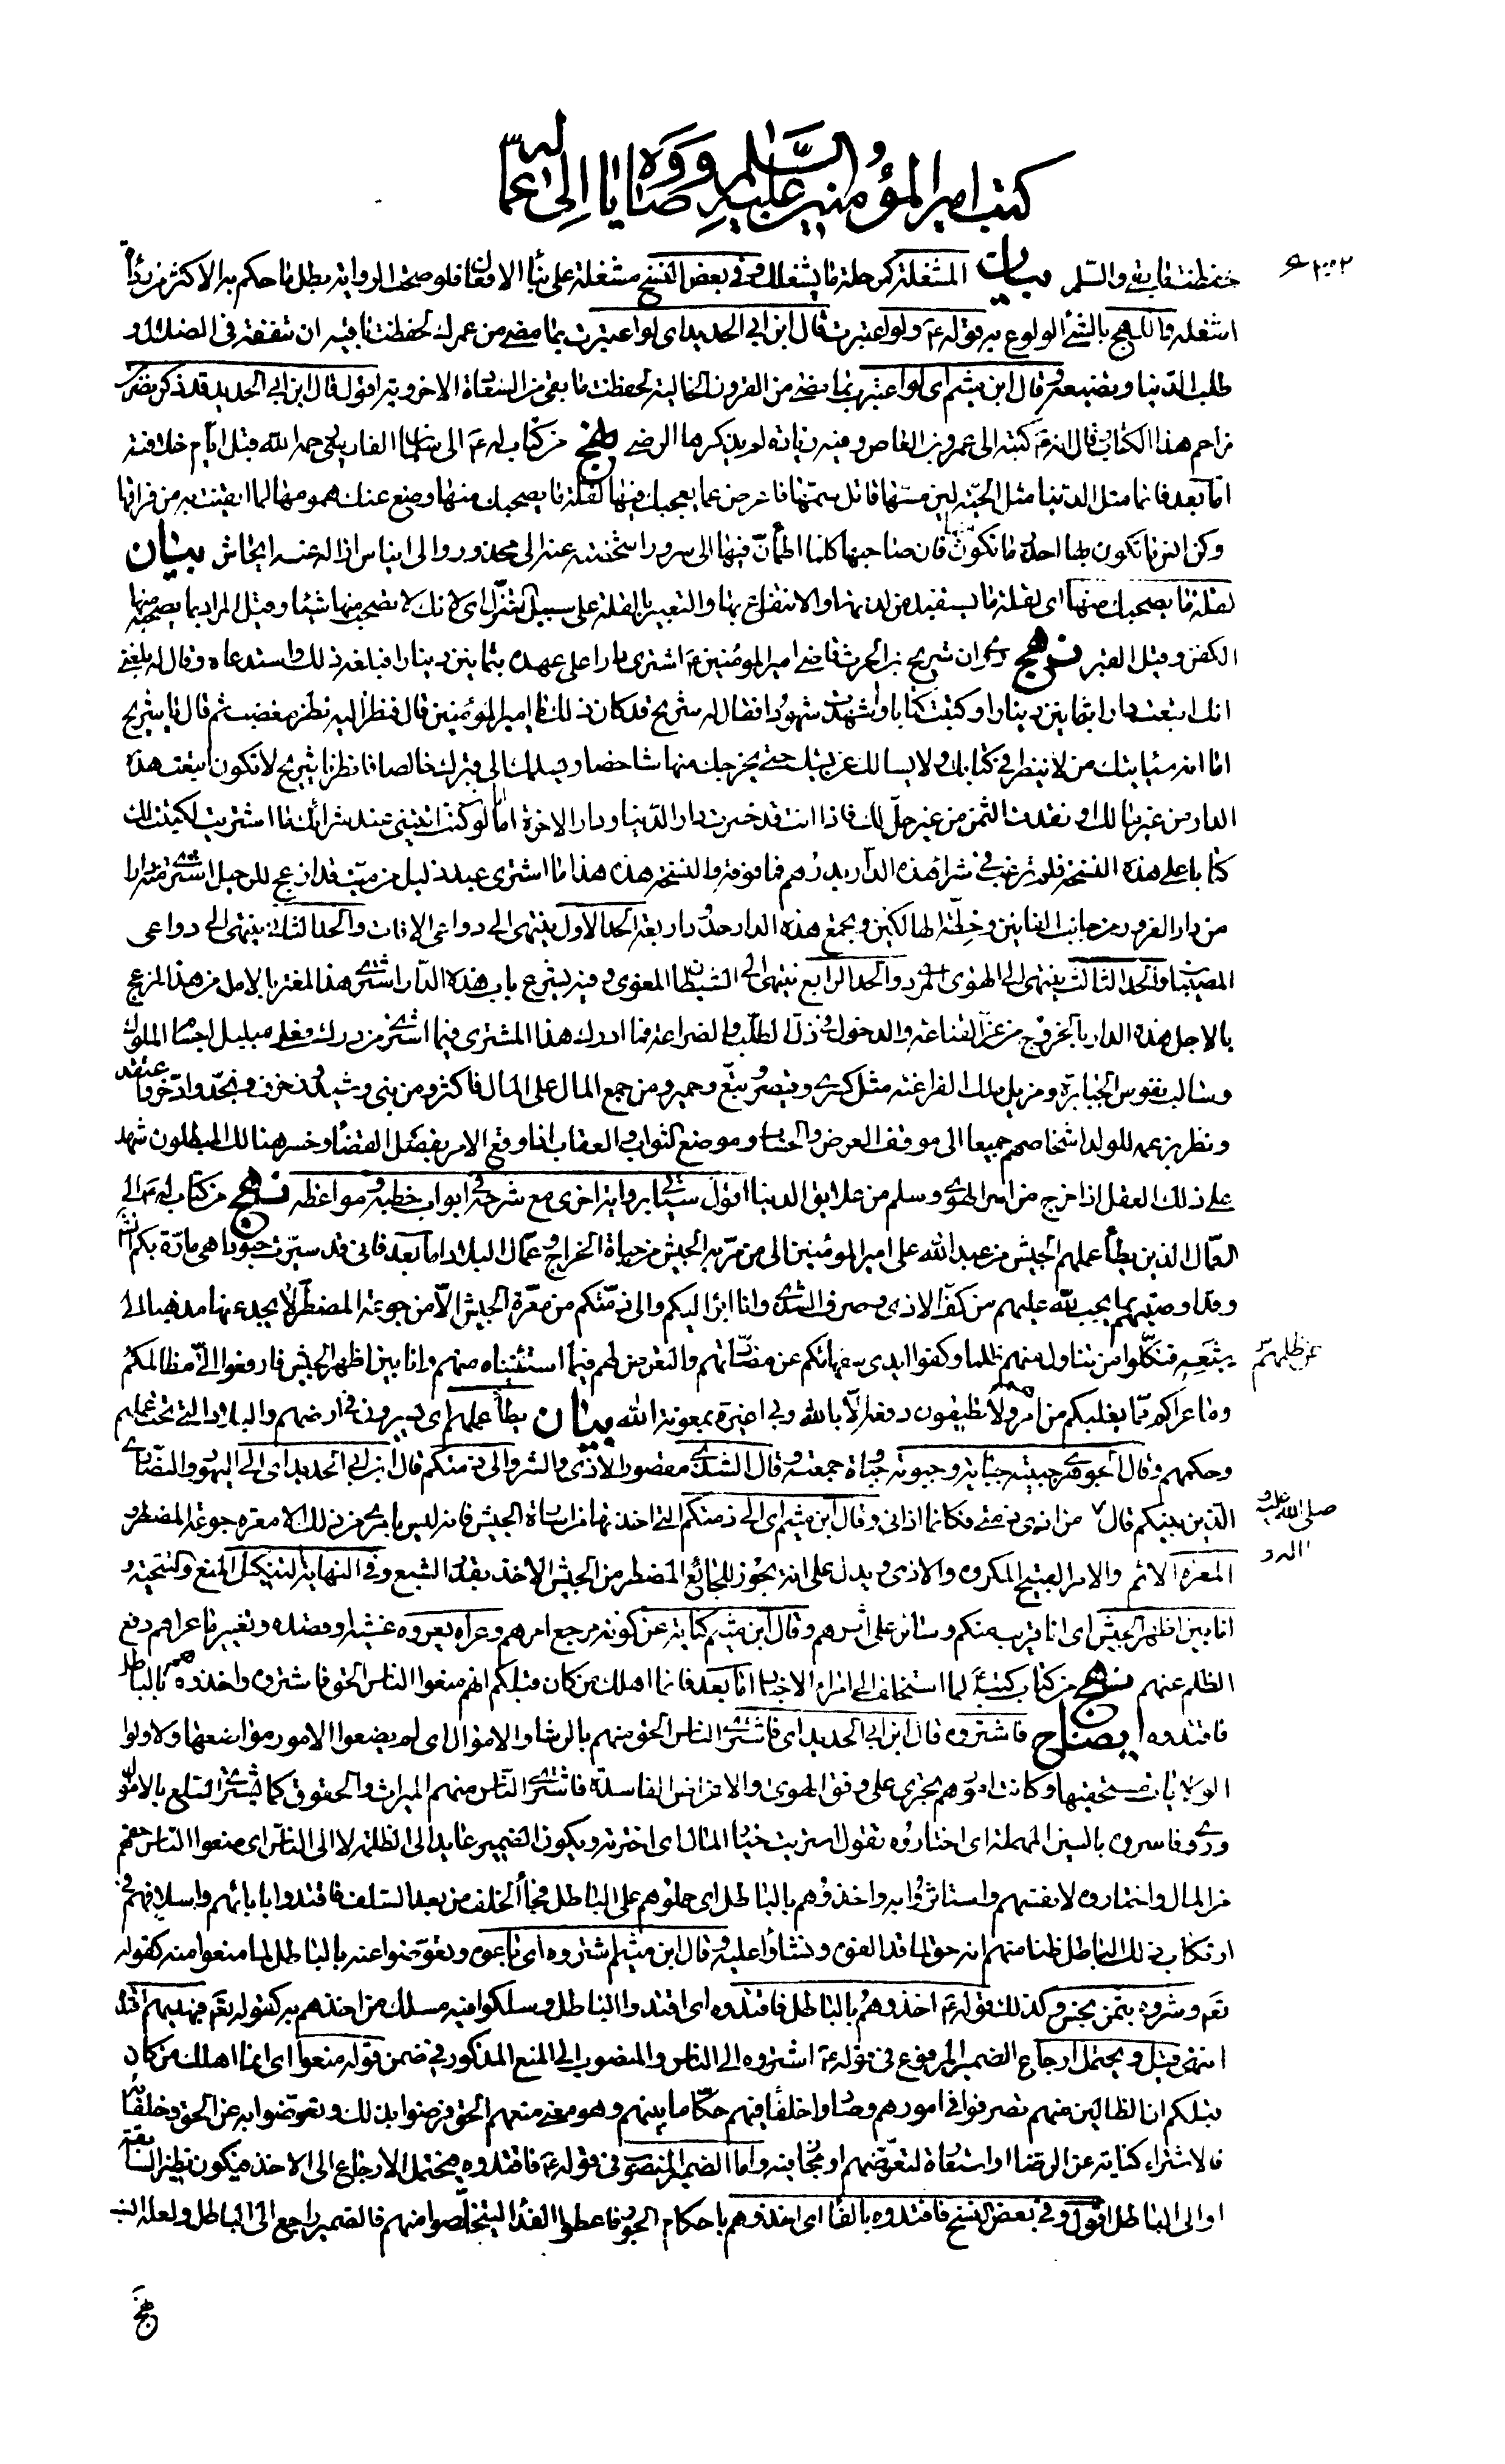 كتب امير المؤمنين عليه السلام ووصاياه الى عماله
حفظت ما بقى والسلم بيان المشغلة كمرحلة ما يشغلك وفى بعض النسخ مشغلة على بناء الافعال فلو صحت الرواية بطل ما حكم به الاكثر من رداءة
اشغله واللهج بالشئ الولوع به قوله ع ولو اعتبرت قال ابن ابى الحديد اى لو اعتبرت بما مضى من عمرك لحفظت باقيه ان تنفقه فى الضلال و
طلب الدنيا وتضيعه وقال ابن ميثم اى لو اعتبرت بما مضى من القرون الخالية لحفظت ما بقى من السعادة الاخروية اقول قال ابن ابى الحديد قد ذكر نصر بن
مزاحم هذا الكتاب وقال انه ع كتبه الى عمرو بن العاص وفيه زيادة لم يذكرها الرضى نهج من كتاب له ع الى سلمان الفارسى رحمه الله قبل ايام خلافته
اما بعد فانما مثل الدنيا مثل الحية لين مسها قاتل سمها فاعرض عما يعجبك فيها لقلة ما يصحبك منها وضع عنك همومها لما ايقنت به من فراقها
وكن انس ما تكون بها احذر ما تكون منها فان صاحبها كلما اطمأن فيها الى سرور اشخصته عنه الى محذور والى ايناس ازاله عنه ايحاش بيان
لقلة ما يصحبك منها اى لقلة ما يستفيد من لذتها والانتفاع بها والتعبير بالقلة على سبيل التنزل اى لانك لا تصحب منها شيئا وقيل المراد بما يصحبه منها
الكفن وقيل القبر نهج روى ان شريح بن الحرث قاضى امير المؤمنين ع اشترى دارا على عهده بثمانين دينارا فبلغه ذلك واستدعاه وقال له بلغنى
انك ابتعت دارا بثمانين دينارا وكتبت كتابا واشهدت شهودا فقال له شريح قد كان ذلك يا امير المؤمنين قال فنظر اليه نظر مغضب ثم قال يا شريح
اما انه سيأتيك من لا ينظر فى كتابك ولا يسالك عن بينتك حتى يخرجك منها شاخصا ويسلمك الى قبرك خالصا فانظر يا شريح لا تكون ابتعت هذه
الدار من غير مالك او نقدت الثمن من غير حلالك فاذا انت قد خسرت دار الدنيا ودار الاخرة اما انك لو كنت اتيتنى عند شرائك ما اشتريت لكتبت لك
كتابا على هذه النسخة فلم ترغب فى شراء هذه الدار بدرهم فما فوقه والنسخة هذه هذا ما اشترى عبد ذليل من ميت قد ازعج للرحيل اشترى منه دارا
من دار الغرور من جانب الفانين وخطة الهالكين وتجمع هذه الدار حدود اربعة الحد الاول ينتهى الى دواعى الافات والحد الثانى ينتهى الى دواعى
المصيبات والحد الثالث ينتهى الى الهوى المردى والحد الرابع ينتهى الى الشيطان المغوى وفيه يشرع باب هذه الدار اشترى هذا المغتر بالامل من هذا المزعج
بالاجل هذه الدار بالخروج من عز القناعة والدخول فى ذل الطلب والضراعة فما ادرك هذا المشترى فيما اشترى من درك فعلى مبلبل اجسام الملوك
وسالب نفوس الجبابرة ومزيل ملك الفراعنة مثل كسرى وقيصر وتبع وحمير ومن جمع المال على المال فاكثر ومن بنى وشيد وزخرف ونجد وادخر واعتقد
ونظر بزعمه للولد اشخاصهم جميعا الى موقف العرض والحساب وموضع الثواب والعقاب اذا وقع الامر بفصل القضاء وخسر هنالك المبطلون شهد
على ذلك العقل اذا خرج من اسر الهوى وسلم من علائق الدنيا اقول سياتى برواية اخرى مع شرحه فى ابواب خطبه ومواعظه نهج من كتاب له ع الى
العمال الذين يطأ عملهم الجيش من عبد الله على امير المؤمنين الى من مر به الجيش من جباة الخراج وعمال البلاد اما بعد فانى قد سيرت جنودا هى مارة بكم انشاء الله
وقد اوصيتهم بما يجب لله عليهم من كف الاذى وصرف الشذى وانا ابرأ اليكم والى ذمتكم من معرة الجيش الا من جوعة المضطر لا يجد عنها مذهبا الى
شبعه فنكلوا من تناول منهم ظلما وكفوا ايدى سفهائكم عن مضادتهم والتعرض لهم فيما استثنيناه منهم وانا بين اظهر الجيش فارفعوا الى مظالمكم
عن ظلمهم
وما عراكم مما يغلبكم من امرهم ولا تطيقون دفعه الا بالله وبى اغيره بمعونة الله بيان يطأ عملهم اى يسيرون فى ارضهم والبلاد التى تحت عملهم
وحكمهم وقال الجوهرى جبيته جباية وجبوته جباوة جمعته وقال الشذى مقصور الاذى والشر والى ذمتكم قال ابن ابى الحديد اى الى اليهود والنصارى
الذين بينكم قال من اذى ذمتى فكانما اذانى وقال ابن ميثم اى الى ذمتكم التى اخذتها من اساءة الجيش فانه ليس بامرى من ذلك الا معرة جوعة المضطر و
صلى الله عليه واله و
المعرة الاثم والامر القبيح المكروه والاذى ويدل على انه يجوز للجائع المضطر من الجيش الاخذ بقدر الشبع وفى النهاية التنكيل المنع والتنحية و
انا بين اظهر الجيش اى انا قريب منكم وسائر على اثرهم وقال ابن ميثم كناية عن كونه مرجع امرهم وعراه يعروه غشيه او قصده وتغيير ما عراهم دفع
الظلم عنهم نهج من كتاب كتبه ع لما استخلف الى امراء الاجناد اما بعد فانما اهلك من كان قبلكم انهم منعوا الناس الحق فاشتروه واخذوهم بالباطل
فاقتدوه ايضاح فاشتروه قال ابن ابى الحديد اى فاشترى الناس الحق منهم بالرشا والاموال اى لم يضعوا الامور مواضعها ولا ولوا
الولايات مستحقيها وكانت امورهم تجرى على وفق الهوى والاغراض الفاسدة فاشترى الناس منهم الميراث والحقوق كما يشترى السلع بالاموال
وروى فاستروه بالسين المهملة اى اختاروه تقول استريت خيار المال اى اخترته ويكون الضمير عائدا الى الظلمة لا الى الناس اى منعوا الناس حقهم
من المال واختاروه لانفسهم واستاثروا به واخذوهم بالباطل اى حملوهم على الباطل فجاء الخلف من بعد السلف فاقتدوا بابائهم واسلافهم فى
ارتكاب ذلك الباطل ظنا منهم انه حق لما قد الفوه ونشأوا عليه وقال ابن ميثم اشتروه اى باعوه وتعوضوا عنه بالباطل لما منعوا منه كقوله
تعالى وشروه بثمن بخس وكذلك قوله ع اخذوهم بالباطل فاقتدوه اى اقتدوا الباطل وسلكوا فيه مسلك من اخذهم به كقوله تعالى فبهديهم اقتده
انتهى قيل ويحتمل ارجاع الضمير المرفوع فى قوله ع اشتروه الى الناس والمنصوب الى المنع المذكور فى ضمن قوله منعوا اى انما اهلك من كان
قبلكم ان الظالمين منهم تصرفوا فى امورهم وصاروا خلفاء فيهم حكاما بينهم وهو معنى منعهم الحق فرضوا بذلك وتعوضوا به عن الحق وخلفائه
فالاشتراء كناية عن الرضا او استعارة لتعوضهم او مجاز فيه واما الضمير المنصوب فى قوله ع فاقتدوه فيحتمل الارجاع الى الاخذ فيكون نظير السابقة
او الى الباطل اقول وفى بعض النسخ فافتدوه بالفاء اى اخذوهم باحكام الجور فاعطوا الفداء ليتخلصوا منهم فالضمير راجع الى الباطل ولعله انسب
نهج